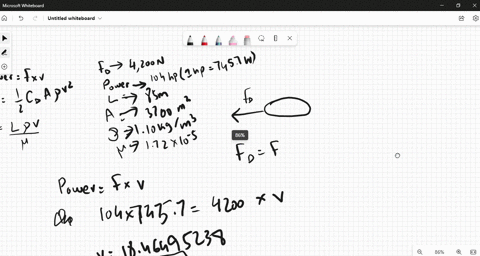 Microsoft Whiteboard
Untitled whiteboard
Power = f x v
= 1/2 CD A ρ v²
LρV/μ
fD → 4,200N
Power → 104 hp (1hp = 745.7 W)
L → 85m
A → 3700 m²
→ 1.10 kg/m³
μ → 1.72 x 10⁻⁵
fD
86%
FD = F
Power = f x v
104 x 745.7 = 4200 x v
v = 18.46495238
86%